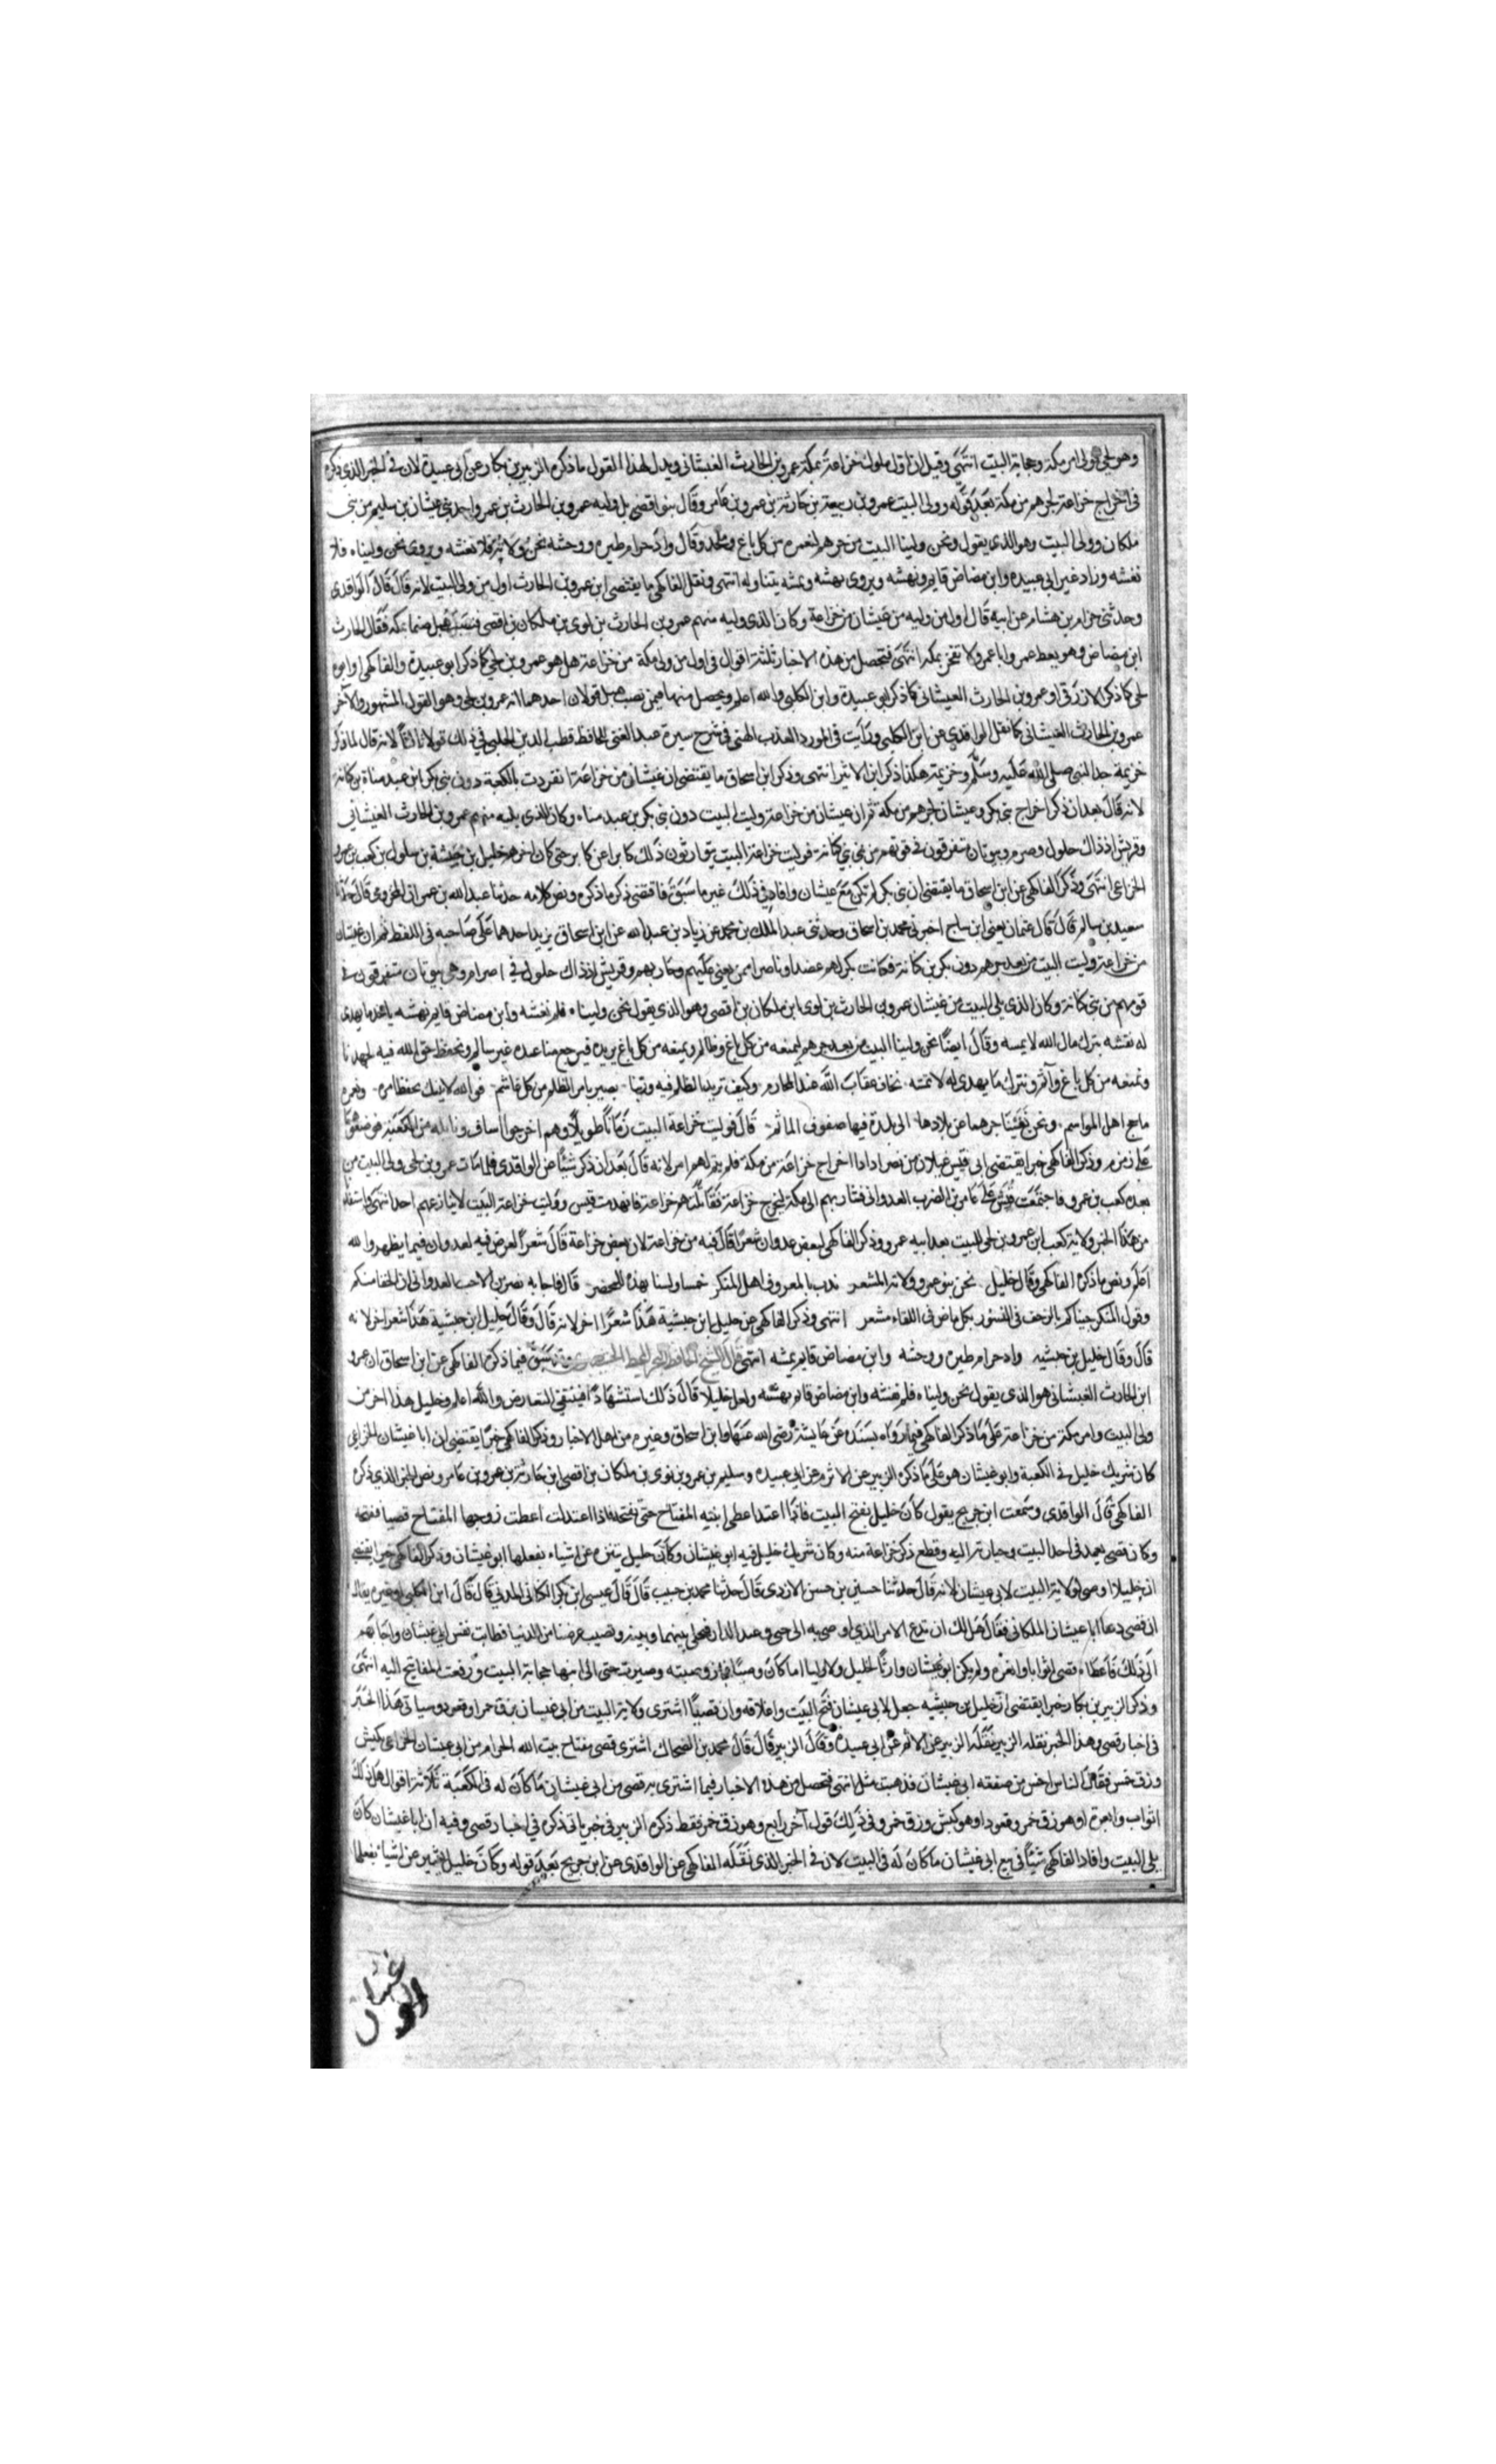 وهو لحي ولى امر مكة وحجابة البيت انتهى وقيل ان اول ملوك خزاعة بمكة عمرو بن الحارث الغبشاني ويدل لهذا القول ما ذكره الزبير بن بكار عن ابي عبيدة لان في الخبر الذي ذكره
في اخراج خزاعة لجرهم من مكة بعد قوله وولى البيت عمرو بن ربيعة بن حارثة بن عمرو بن عامر وقال بنو اقصى بل وليه عمرو بن الحارث بن عمرو احد بني غبشان بن سليم من بني
ملكان وولى البيت وهو الذي يقول ونحن ولينا البيت من جرهم لنعمره من كل باغ وملحد وقال وادٍ حرام طيره ووحشه نحن ولاته فلا نغشه ويروى نحن وليناه فلا
نغشه وزاد غير ابي عبيده وابن مضاض قايم ونهشه ويروى بهشه ويمشه يتناوله انتهى ونقل الفاكهي ما يقتضي ان عمرو بن الحارث اول من ولى البيت لانه قال قال الواقدي
وحدثني حزام بن هشام عن ابيه قال اول من وليه من غبشان من خزاعة وكان الذي وليه منهم عمرو بن الحارث بن لوى بن ملكان بن اقصى فنصب هبل صنما بمكة فقال الحارث
ابن مضاض وهو يعظ عمرو ابا عمرو لا تفجر بمكة انتهى فتحصل من هذه الاخبار ثلثة اقوال في اول من ولى مكة من خزاعة هل هو عمرو بن لحي كما ذكر ابو عبيدة والفاكهي او ابوه
لحي كما ذكر الازرقي او عمرو بن الحارث الغبشاني كما ذكر ابو عبيدة وابن الكلبي والله اعلم ويحصل منها فيمن نصب هبل قولان احدهما انه عمرو بن لحي وهو القول المشهور والآخر
عمرو بن الحارث الغبشاني كما نقل الواقدي عن ابن الكلبي ورأيت في المورد العذب الهني في شرح سيرة عبد الغني للحافظ قطب الدين الحلبي في ذلك قولا ثالثا لانه قال لما ذكر
خزيمة جد النبي صلى الله عليه وسلم وخزيمة هكذا ذكر ابن الاثير انتهى وذكر ابن اسحاق ما يقتضي ان غبشان من خزاعة انفردت بالكعبة دون بني بكر ابن عبد مناة بن كنانة
لانه قال بعد ان ذكر اخراج بني بكر وغبشان لجرهم من مكة ثم ان غبشان من خزاعة وليت البيت دون بني بكر بن عبد مناه وكان الذي يليه منهم عمرو بن الحارث الغبشاني
وقريش اذ ذاك حلول وصرم وبيوتات متفرقون في قومهم من بني كنانة فوليت خزاعة البيت يتوارثون ذلك كابرا عن كابر حتى كان اخرهم خليل بن حبشية بن سلول بن كعب بن عمرو
الخزاعي انتهى وذكر الفاكهي عن ابن اسحاق ما يقتضي ان بني بكر لم تكن مع غبشان وافاد في ذلك غير ما سبق فاقتضى ذكر ما ذكره ونص كلامه حدثنا عبد الله بن عمران المخزومي قال حدثنا
سعيد بن سالم قال قال عثمان يعني ابن ساج اخبرني محمد بن اسحاق وحدثني عبد الملك بن محمد عن زياد بن عبد الله عن ابن اسحاق يزيد احدهما على صاحبه في اللفظ ثم ان غبشان
من خزاعة وليت البيت من بعد جرهم دون بكر بن كنانة فكانت بكر لهم عضدا وناصرا ممن بغى عليهم وحاربهم وقريش اذ ذاك حلول في اصرام وهي بيوتات متفرقون في
قومهم من بني كنانة وكان الذي يلي البيت من غبشان عمرو بن الحارث بن لوى ابن ملكان بن اقصى وهو الذي يقول نحن وليناه فلم نغشه وابن مضاض قايم نهشه ياخذ ما يهدى
له نفشه نترك مال الله لا نمسه وقال ايضا نحن ولينا البيت من بعد جرهم لنمنعه من كل باغ وظالم ونمنعه من كل باغ يريده فيرجع منا عنده غير سالم ونحفظ حق الله فيه لجهدنا
ونمنعه من كل باغ وآثم ونترك ما يهدى له لا نمسه نخاف عقاب الله عند المحارم وكيف نريد الظلم فيه وربنا بصير بامر الظلم من كل غاشم فوالله لا ينفك نحفظ امره ونعمره
ما حج اهل المواسم ونحن نفينا جرهما عن بلادها الى بلدة فيها صفوف الماثم قال فوليت خزاعة البيت زمانا طويلا وهم اخرجوا اساف ونائله من الكعبة فوضعوهما
على زمزم وذكر الفاكهي خبرا يقتضي ان قيس عيلان بن نصر ارادوا اخراج خزاعة من مكة فلم يتم لهم امر لانه قال بعد ان ذكر شيئا عن الواقدي فلما مات عمرو بن لحي ولى البيت من
بعده كعب بن عمرو فاجتمعت قيس على عامر بن الضرب العدواني فسار بهم الى مكة ليخرج خزاعة فقاتلتهم خزاعة فانهزمت قيس ووليت خزاعة البيت لا ينازعهم احد انتهى واستفدنا
من هذا الخبر ولاية كعب ابن عمرو بن لحي للبيت بعد ابيه عمرو وذكر الفاكهي لبعض عدوان شعرا قال فيه من خزاعة لان بعض خزاعة قال شعرا لعرض فيه لعدوان فيما يظهر والله
اعلم ونص ما ذكره الفاكهي وقال خليل نحن بنو عمرو ولاة المشعر نذب بالمعروف اهل المنكر خمسا ولسنا بهذه المحضر قال فاجابه نصر بن الاحب العدواني ان الخنا منكم
وقول المنكر جيناكم بالزحف في السنور بكل ماض في اللقاء مشعر انتهى وذكر الفاكهي عن خليل ابن حبشية هذا شعرا اخر لانه قال وقال خليل ابن حبشية هذا شعر اخر لانه
قال وقال خليل بن حبشيه وادٍ حرام طيره ووحشه وابن مضاض قايم يمشه انتهى قال الشيخ الحافظ سبق فيما ذكره الفاكهي عن ابن اسحاق ان عمرو
ابن الحارث الغبشاني هو الذي يقول نحن وليناه فلم نغشه وابن مضاض قايم يهشه ولعل خليلا قال ذلك استشهادا فينتفي التعارض والله اعلم وخليل هذا اخر من
ولى البيت وامر مكة من خزاعة على ما ذكر الفاكهي فيما رواه بسنده عن عايشة رضي الله عنها وابن اسحاق وغيره من اهل الاخبار وذكر الفاكهي خبرا يقتضي ان ابا غبشان الخزاعي
كان شريك خليل في الكعبة وابو غبشان هو على ما ذكره الزبير عن الاثرم عن ابي عبيده وسليم بن عمرو بن نوى بن ملكان بن اقصى ابن حارثة بن عمرو بن عامر ونص الخبر الذي ذكره
الفاكهي قال الواقدي وسمعت ابن جريج يقول كان خليل يفتح البيت فاذا اعتل اعطى ابنته المفتاح حتى تفتحه فاذا اعتلت اعطت زوجها المفتاح قصيا ففتحه
وكان قصي يعمد في اخذ البيت وحيازته اليه وقطع ذكر خزاعة منه وكان شريك خليل فيه ابو غبشان وكان خليل يتنزه عن اشياء يفعلها ابو غبشان وذكر الفاكهي خبرا يقتضي
ان خليلا اوصى بولاية البيت لابي غبشان لانه قال حدثنا حسين بن حسن الازدي قال حدثنا محمد بن حبيب قال قال عيسى ابن بكر الكناني المدني قال قال ابن الكلبي وغيره يقال
ان قصي دعا ابا غبشان الملكاني فقال هل لك ان تدع الامر الذي اوصى به الى حبي وعبد الدار فتخلي بينهما وبينه وتصيب عرضا من الدنيا فطابت نفس ابي غبشان واجابهم
الى ذلك فاعطاه قصي اثوابا وابعرة ولم يكن ابو غبشان وارثا لخليل ولا وليا اما كان وصيا فجاز وصيته وصيرت حبي الى ابنها حجابة البيت ودفعت المفاتيح اليه انتهى
وذكر الزبير بن بكار خبرا يقتضي ان خليل بن حبشيه جعل لابي غبشان فتح البيت واغلاقه وان قصيا اشترى ولاية البيت من ابي غبشان بزق خمر او قعود وسياتي هذا الخبر
في اخبار قصي وهذا الخبر نقله الزبير عن الاثرم عن ابي عبيدة وقال الزبير قال قال محمد بن الضحاك اشترى قصي مفتاح بيت الله الحرام من ابي غبشان الخزاعي بكبش
وزق خمر فقال الناس اخسر من صفقه ابي غبشان فذهبت مثلا انتهى فتحصل من هذه الاخبار فيما اشترى به قصي من ابي غبشان ما كان له في الكعبة ثلاثة اقوال هل ذلك
اثواب وابعرة او هو زق خمر وقعود او هو كبش وزق خمر وفي ذلك قول آخر رابع وهو زق خمر فقط ذكره الزبير في خبر ياتي ذكره في اخبار قصي وفيه ان ابا غبشان كان
يلي البيت وافاد الفاكهي شيئا في بيع ابي غبشان ما كان له في البيت لان في الخبر الذي نقله الفاكهي عن الواقدي عن ابن جريج بعد قوله وكان خليل يتنزه عن اشياء يفعلها
ابو غبشان